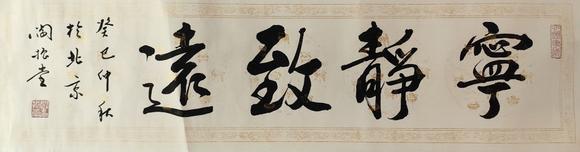 寧靜致遠
癸巳仲秋
於北京
閻振堂